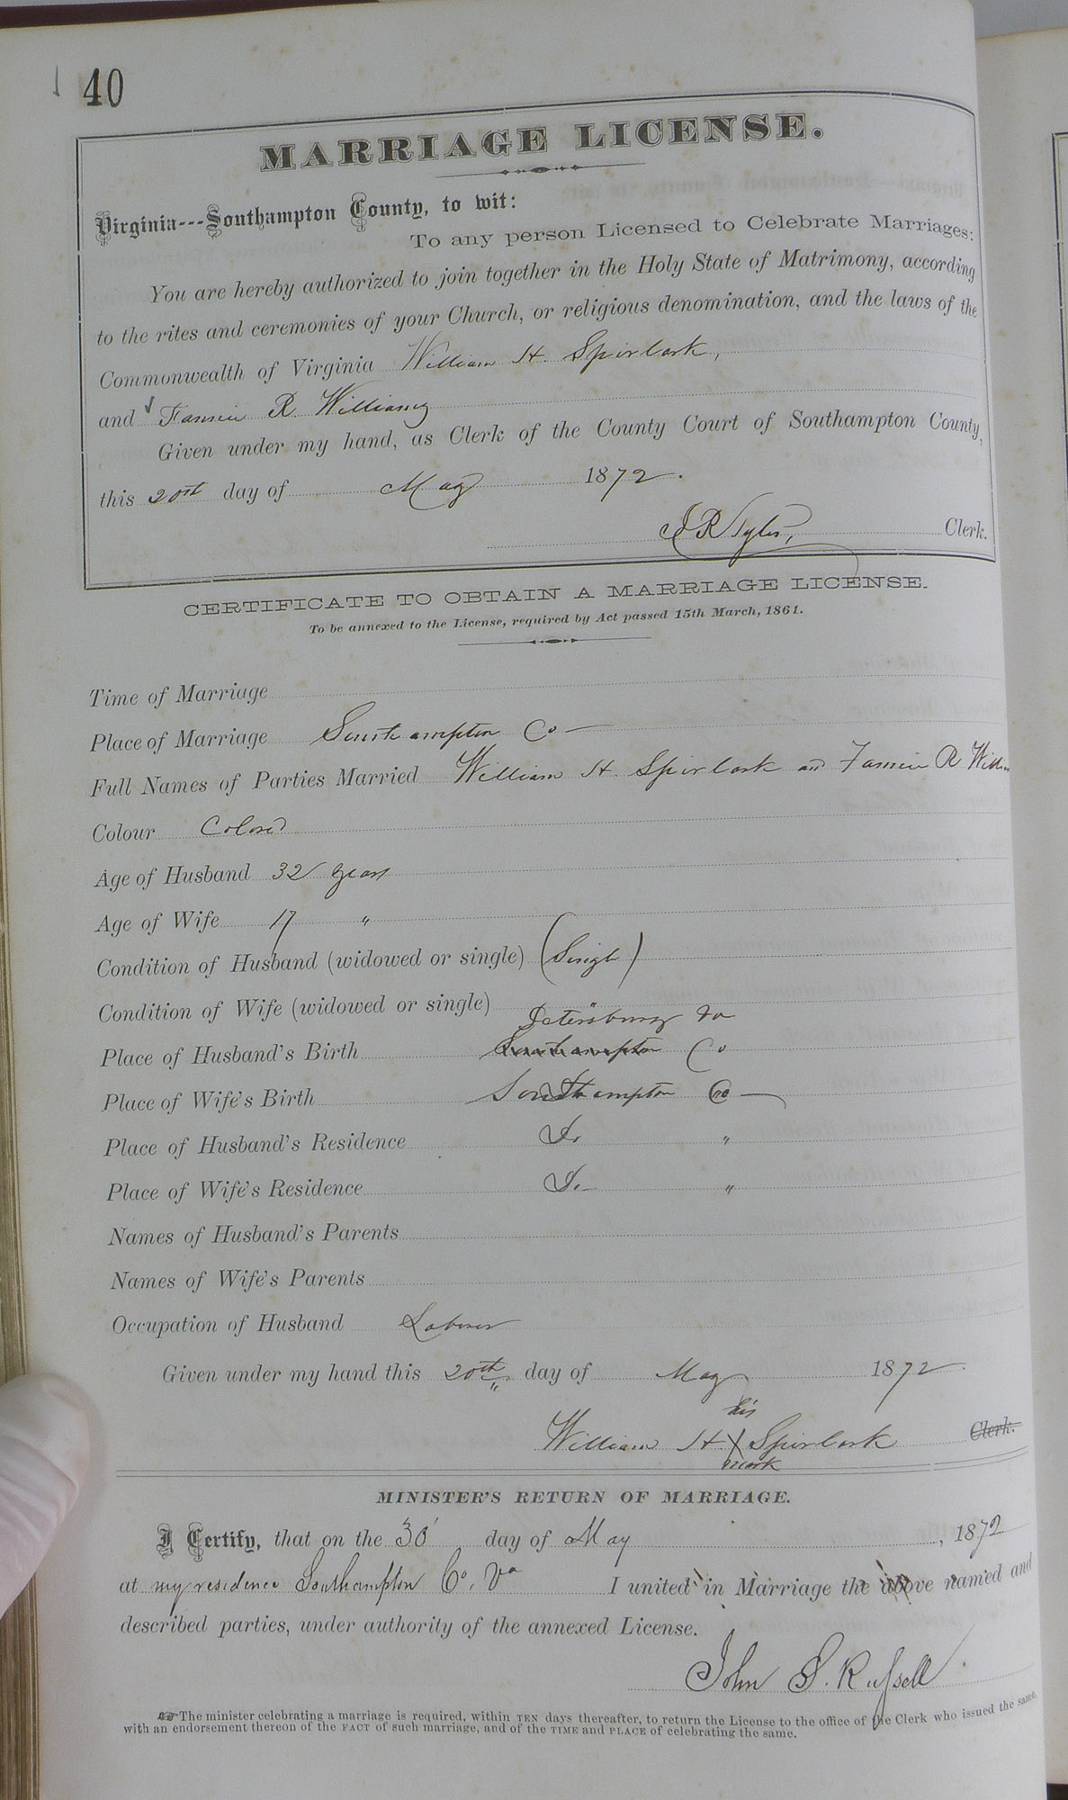 40
MARRIAGE LICENSE.
Virginia---Southampton County, to wit:
To any person Licensed to Celebrate Marriages:
You are hereby authorized to join together in the Holy State of Matrimony, according
to the rites and ceremonies of your Church, or religious denomination, and the laws of the
Commonwealth of Virginia William H. Spirlark,
and Fannie R. Williams
Given under my hand, as Clerk of the County Court of Southampton County,
this 20th day of May 1872.
J R Tyler, Clerk.
CERTIFICATE TO OBTAIN A MARRIAGE LICENSE.
To be annexed to the License, required by Act passed 15th March, 1861.
Time of Marriage
Place of Marriage Southampton Co
Full Names of Parties Married William H. Spirlark and Fannie R Willia
Colour Colored
Age of Husband 32 years
Age of Wife 17 "
Condition of Husband (widowed or single) (Single)
Condition of Wife (widowed or single) "
Petersburg Va
Place of Husband's Birth Southampton Co
Place of Wife's Birth Southampton Co
Place of Husband's Residence Do "
Place of Wife's Residence Do "
Names of Husband's Parents
Names of Wife's Parents
Occupation of Husband Laborer
Given under my hand this 20th day of May 1872.
his
William H. X Spirlark Clerk.
mark
MINISTER'S RETURN OF MARRIAGE.
I Certify, that on the 30 day of May, 1872
at my residence Southampton Co. Va I united in Marriage the above named and
described parties, under authority of the annexed License.
John S. Russell.
☞ The minister celebrating a marriage is required, within TEN days thereafter, to return the License to the office of the Clerk who issued the same,
with an endorsement thereon of the FACT of such marriage, and of the TIME and PLACE of celebrating the same.